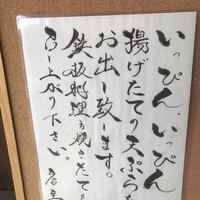 いっぴん、いっぴん
揚げたての天ぷらを
お出し致します。
鉄板料理も焼きたてを
召し上がり下さい。
店主